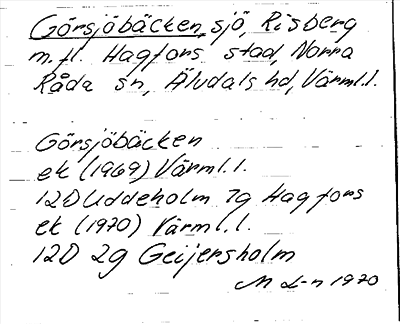 Görsjöbäcken, sjö, Risberg
m.fl. Hagfors stad, Norra
Råda sn, Älvdals hd, Värml.l.
Görsjöbäcken
ek (1969) Värml.l.
12D Uddeholm 7g Hagfors
ek (1970) Värml.l.
12D 2g Geijersholm
M L-n 1970